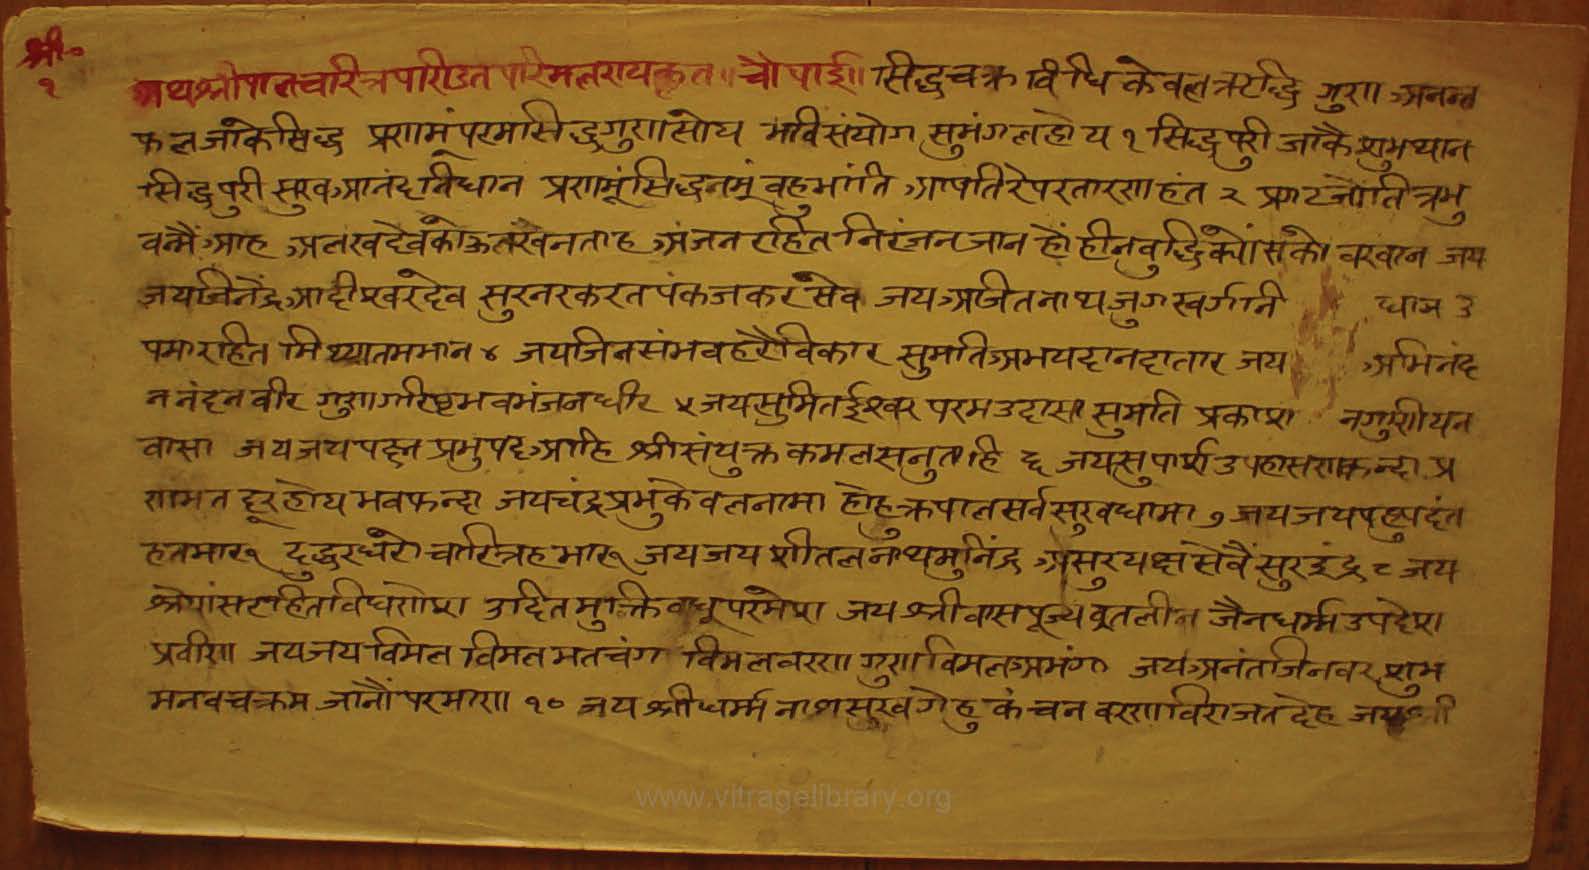 श्री॰
१
अथ श्रीपालचारित्र पंरिडत परिमलराय कृत ॥ चौपाई ॥ सिद्धचक्र विधि केवल ऋद्धि गुण अनन्त
फल जाके सिद्ध प्रणामूं परम सिद्ध गुण सोय भवि संयोग सुमंगल होय १ सिद्धपुरी जाकै शुभ थान
सिद्धपुरी सुख आनंद निधान प्रणामूं सिद्धनमूं वहु भांति आपतिरे पर तारण हंत २ प्रगट जोति त्रभु
वन्मैं आह अलख देव को ऊ लखे न ताह अंजन रहित निरंजन जान हों हीन वुद्धि क्यों सको वखान जय
जय जिनेंद्र आदीश्वर देव सुर नर करत पंकज कर सेव जय अजितनाथ जुग स्वर्गनि ३
पमा रहित मिथ्यातम मान ४ जय जिन संभव हरै विकार सुमति अभयदान दातार जय अभिनंद
न नंदन वीर गुण गरिष्ट भव भंजन धीर ५ जय सुमित ईश्वर परम उदासा सुमति प्रकाश
वासा जय जय पद्म प्रभु पद आहि श्री संयुक्त कमल सनुताहि ६ जय सुपार्श्व प्र
णमत दूर होय भव फन्दा जय चंद्रप्रभु केवल नामा होहु क्रपाल सर्व सुख धामा ७ जय जय पहुपदंत
हतमारू दुद्धर धरो चारित्रह भारू जय जय शीतलनाथ मुनिंद्र असुर यक्ष सेवैं सुर इंद्र ८ जय
श्रेयांस उदित मुक्ति वधू परमेश जय श्री वासपूज्य व्रत लीन जैन धर्म्म उपदेश
प्रवीण जय जय विमल विमल मत चंग विमल वरण गुण विमल अभंग जय अनंत जिनवर शुभ
मन वच क्रम जानौं परमाण १० जय श्री धर्म्म नाथ सुख गेहु कंचन वरण विराजत देह जय श्री
www.vitragelibrary.org